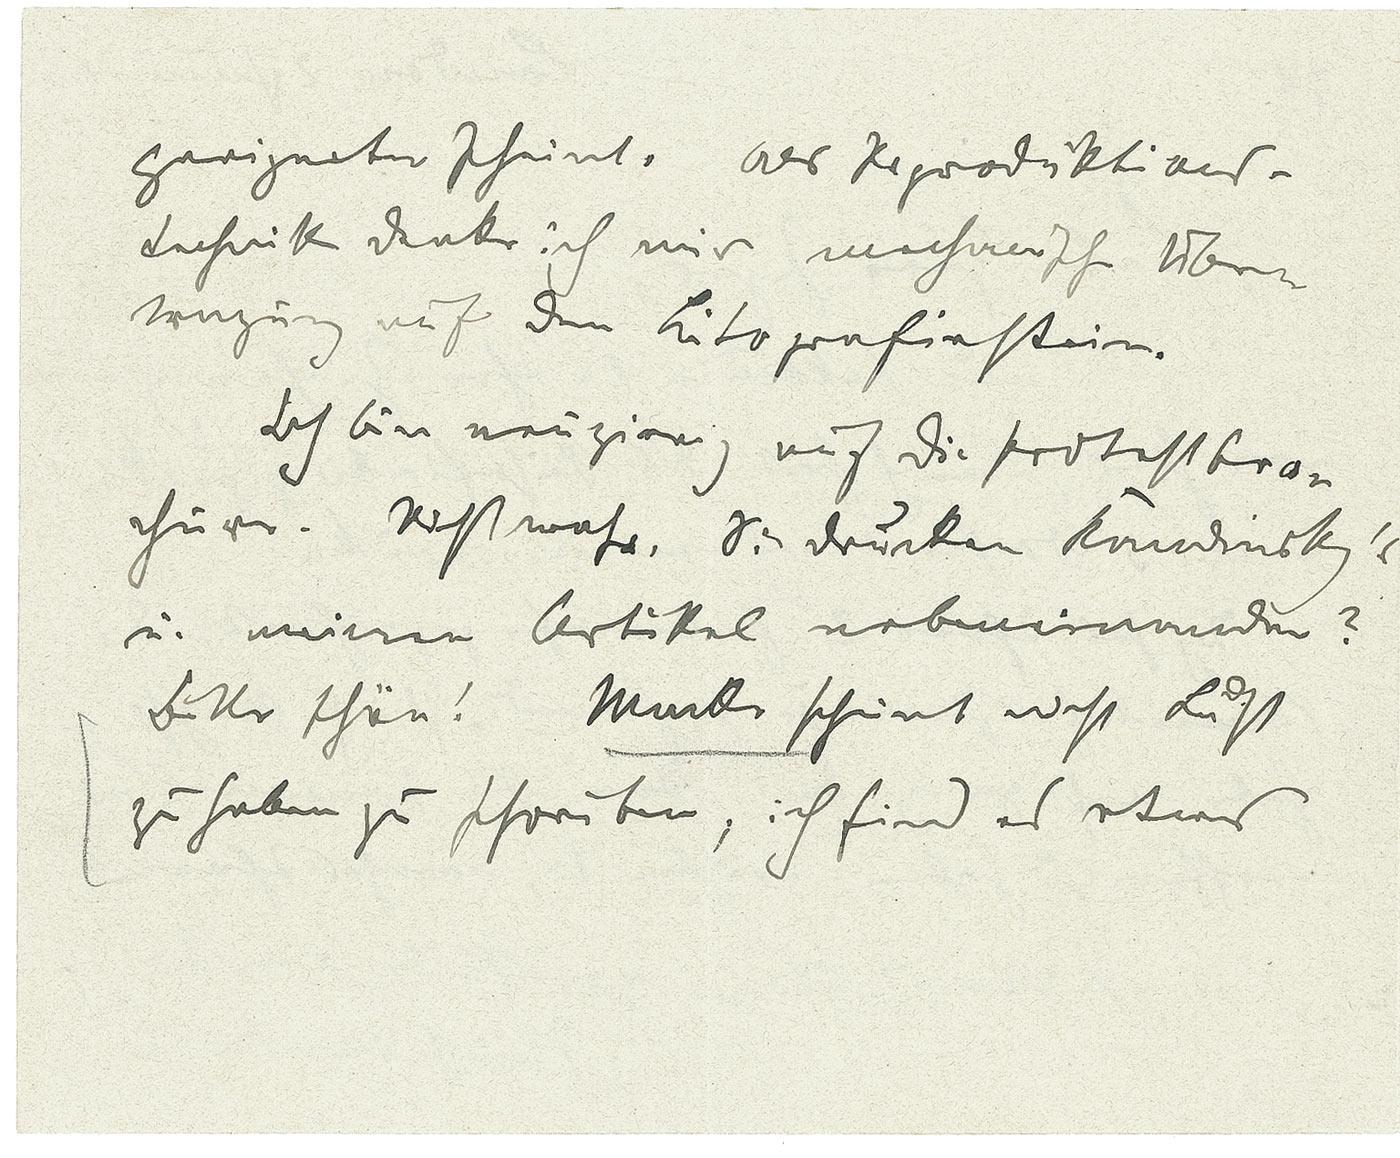 geeigneter scheint. Als Reproduktions-
technik denke ich mir mechanische Über-
tragung auf den Litografiestein.
Ich bin neugierig auf die Protestbro-
chüre. Nicht wahr, Sie drucken Kandinsky's
u. meinen Artikel nebeneinander?
Bitte schön! Macke scheint nicht Lust
zu haben zu schreiben, ich find es etwas